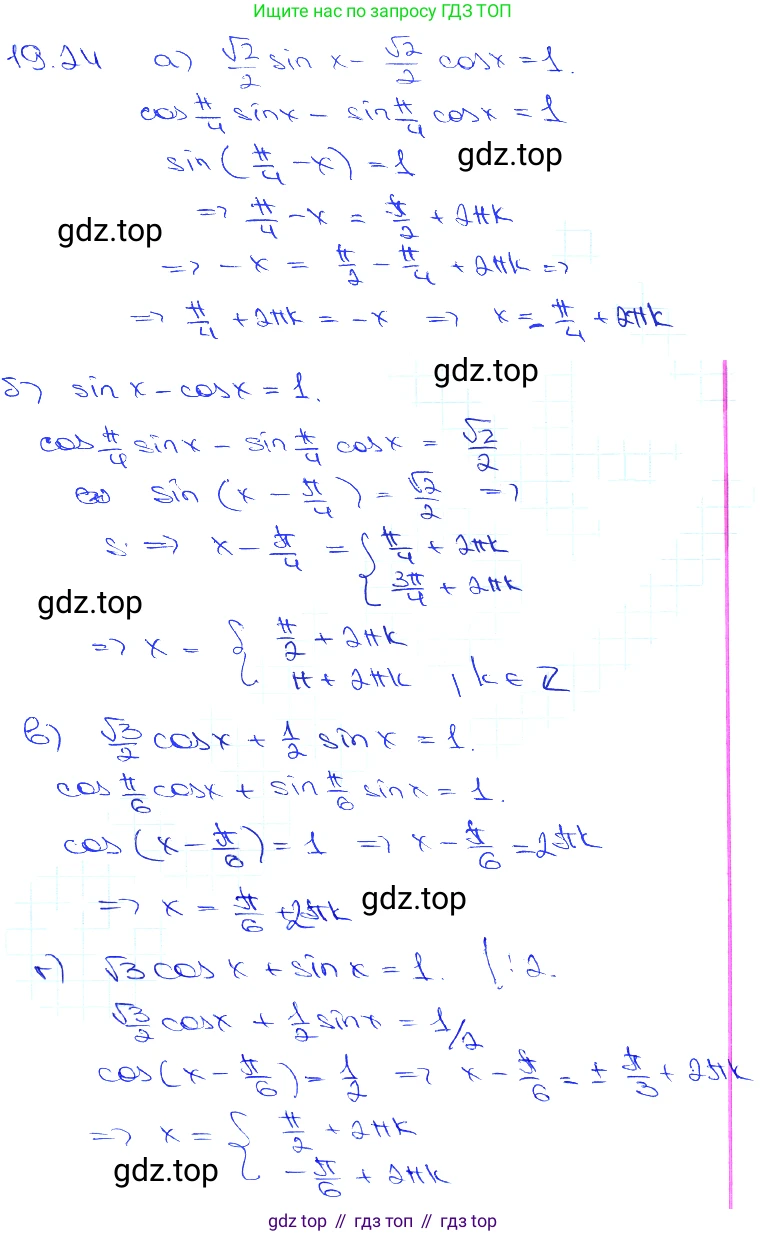 Ищите нас по запросу ГДЗ ТОП
19.24 а) √2/2 sin x - √2/2 cos x = 1.
cos π/4 sin x - sin π/4 cos x = 1
sin (π/4 - x) = 1
gdz.top
=> π/4 - x = π/2 + 2πk
gdz.top
=> -x = π/2 - π/4 + 2πk =>
=> π/4 + 2πk = -x => x = -π/4 + 2πk
gdz.top
б) sin x - cos x = 1.
cos π/4 sin x - sin π/4 cos x = √2/2
sin (x - π/4) = √2/2 =>
=> x - π/4 = { π/4 + 2πk
3π/4 + 2πk
gdz.top
=> x = { π/2 + 2πk
π + 2πk, k ∈ Z
в) √3/2 cos x + 1/2 sin x = 1.
cos π/6 cos x + sin π/6 sin x = 1.
cos (x - π/6) = 1 => x - π/6 = 2πk
=> x = π/6 + 2πk
gdz.top
г) √3 cos x + sin x = 1. |:2.
√3/2 cos x + 1/2 sin x = 1/2
cos (x - π/6) = 1/2 => x - π/6 = ± π/3 + 2πk
=> x = { π/2 + 2πk
-π/6 + 2πk
gdz.top
gdz top // гдз топ // gdz top